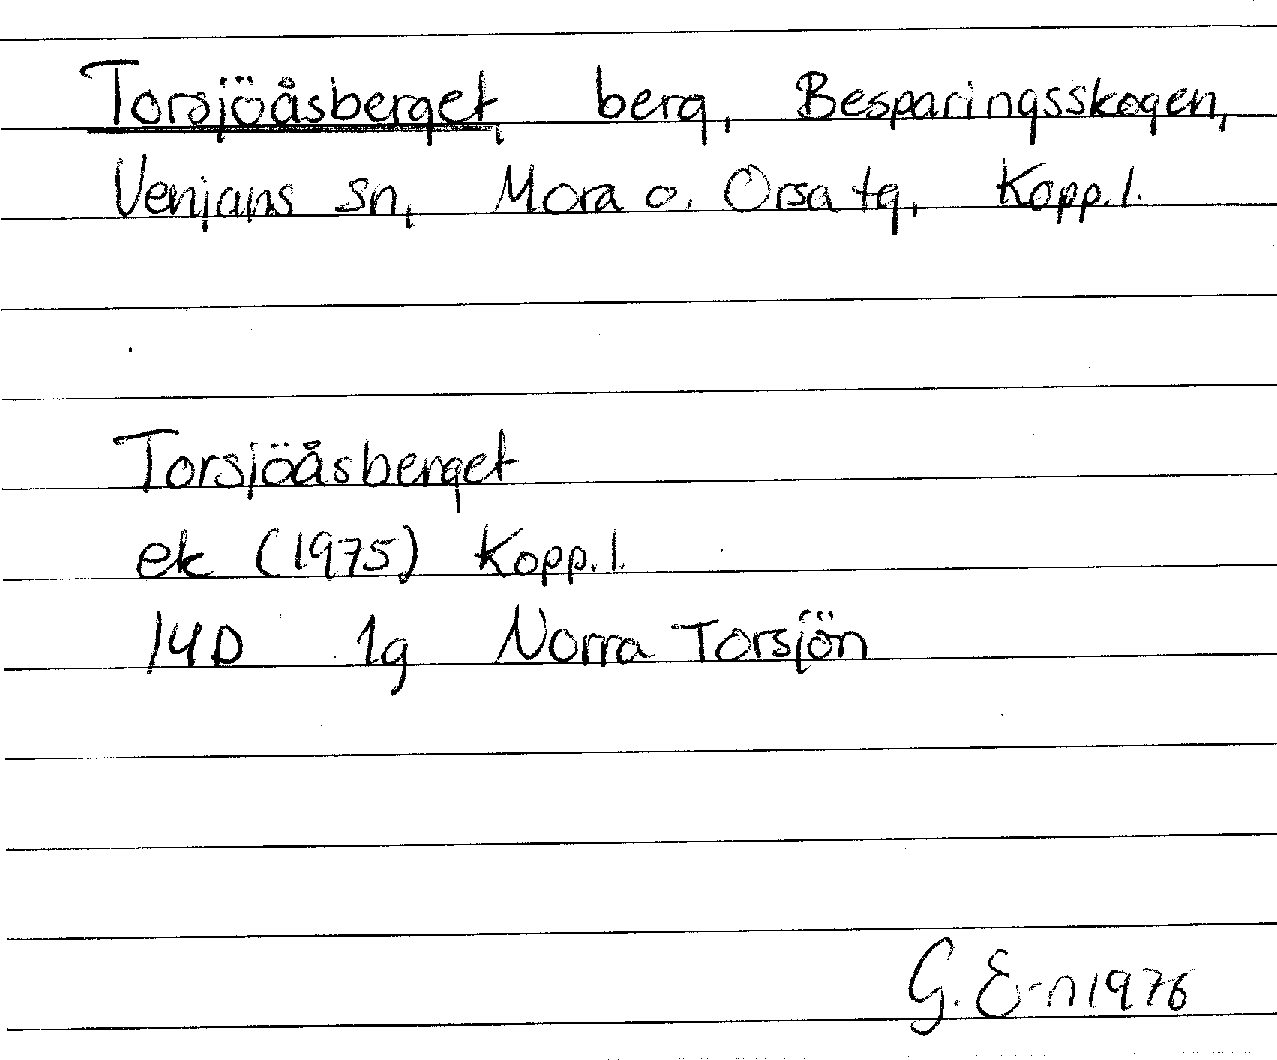 Torsjöåsberget berg, Besparingsskogen,
Venjans sn, Mora o. Orsa tg, Kopp.l.
Torsjöåsberget
ek (1975) Kopp.l.
14D 1g Norra Torsjön
G. E-n 1976